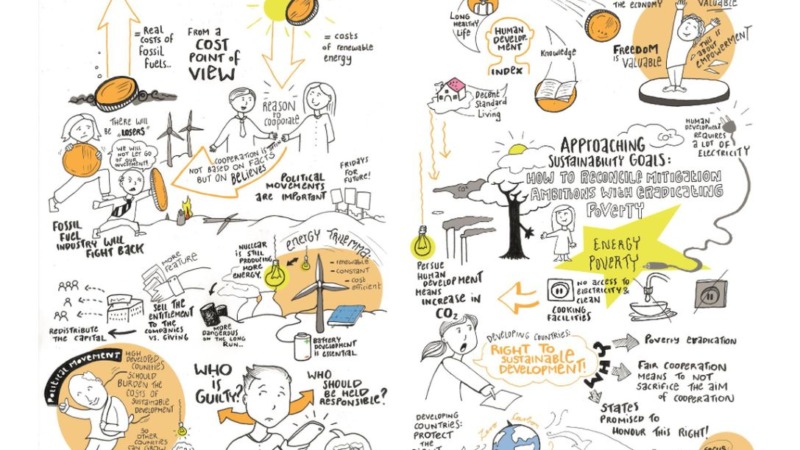 = Real
costs of
Fossil
Fuels..
FROM A
COST
POINT OF
VIEW
= costs
of renewable
energy
THERE WILL
BE LOSERS
WE WILL
NOT LET GO
OF OUR
INVESTMENT!
REASON
TO
COOPERATE
COOPERATION IS OFTEN
NOT BASED ON FACTS
BUT ON BELIEVES
POLITICAL
MOVEMENTS
ARE IMPORTANT
FRIDAYS
FOR
FUTURE!
FOSSIL
FUEL
INDUSTRY WILL
FIGHT BACK
NUCLEAR
IS STILL
PRODUCING
MORE
ENERGY.
ENERGY TRILEMMA:
- renewable
- constant
- cost
efficient
MORE
SELL THE
ENTITLEMENT
TO THE
COMPANIES
VS. GIVING
REDISTRIBUTE
THE CAPITAL
MORE
DANGEROUS
ON THE LONG
RUN...
BATTERY
DEVELOPMENT
IS ESSENTIAL
POLITICAL MOVEMENT
HIGH
DEVELOPED
COUNTRIES
SHOULD
BURDEN THE
COSTS OF
SUSTAINABLE
DEVELOPMENT
SO
OTHER
COUNTRIES
CAN GROW
WHO
IS
GUILTY?
WHO
SHOULD
BE HELD
RESPONSIBLE?
LONG
HEALTHY
LIFE
HUMAN
DEVELOP
MENT
INDEX
Knowledge
Decent
Standard
Living
THE ECONOMY
VALUABLE
FREEDOM
IS VALUABLE
THIS IS
ABOUT
EMPOWERMENT
APPROACHING
SUSTAINABILITY GOALS:
HOW TO RECONCILE MITIGATION
AMBITIONS WITH ERADICATING
POVERTY
CO₂
HUMAN
DEVELOPMENT
REQUIRES
A LOT OF
ELECTRICITY
ENERGY
POVERTY
PERSUE
HUMAN
DEVELOPMENT
MEANS
INCREASE IN
CO₂
NO ACCESS TO
ELECTRICITY &
CLEAN
COOKING
FACILITIES
DEVELOPING COUNTRIES:
RIGHT TO
SUSTAINABLE
DEVELOPMENT!
Poverty eradication
FAIR COOPERATION
MEANS TO NOT
SACRIFICE THE AIM
OF COOPERATION
STATES
PROMISED TO
HONOUR THIS RIGHT!
DEVELOPING
COUNTRIES:
PROTECT
FOCUS